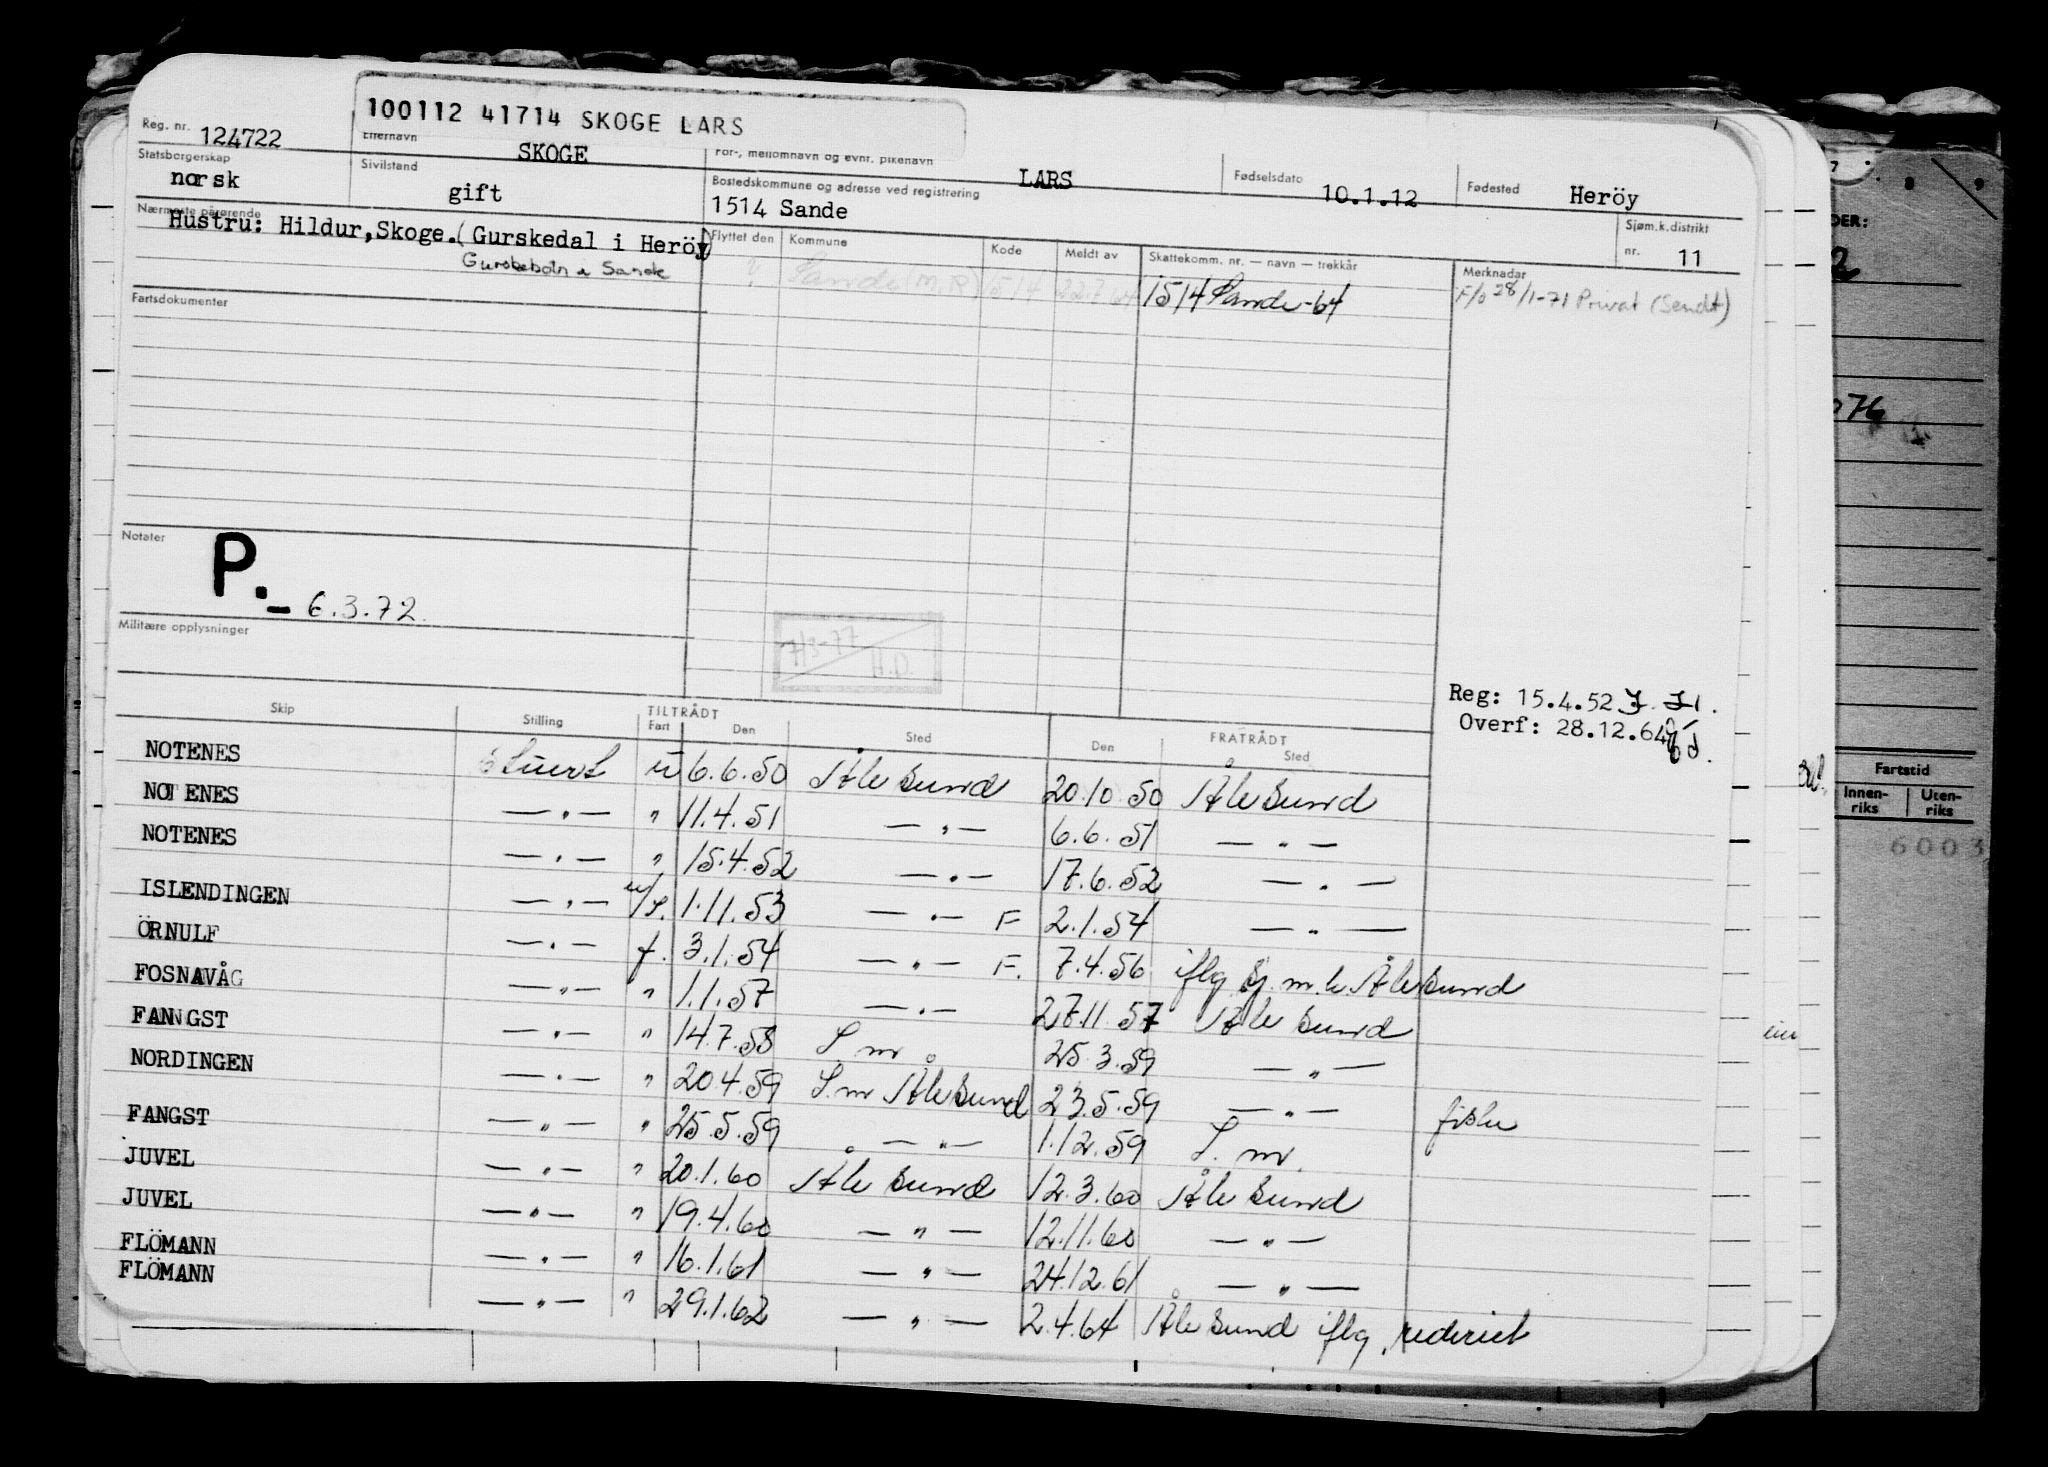 100112 41714 SKOGE LARS
Reg. nr. 124722 Etternavn SKOGE For-, mellomnavn og evnt. pikenavn LARS Fødselsdato 10.1.12 Fødested Heröy
Statsborgerskap norsk Sivilstand gift Bostedskommune og adresse ved registrering 1514 Sande Sjøm.k.distrikt nr. 11
Nærmeste pårørende Hustru: Hildur,Skoge.(Gurskedal i Heröy)
Gurskebotn i Sande
Flyttet den Kommune Kode Meldt av Skattekomm. nr. — navn — trekkår Merknader
? Sande (M.R) 1514 22.7.64 1514 Sande-64 F/o 28/1-71 Privat (Sendt)
Fartsdokumenter
Notater P. - 6.3.72.
Militære opplysninger
7/3-77 H.D.
Reg: 15.4.52
Overf: 28.12.64
Skip Stilling TILTRÅDT Fart Den Sted FRATRÅDT Den Sted
NOTENES Stuert u 6.6.50 Ålesund 20.10.50 Ålesund
NOTENES — " — " 11.4.51 — " — 6.6.51 — " —
NOTENES — " — " 15.4.52 — " — 17.6.52 — " —
ISLENDINGEN — " — 1.11.53 — " — F 2.1.54 — " —
ÖRNULF — " — f. 3.1.54 — " — F. 7.4.56 iflg Sj.m.k. Ålesund
FOSNAVÅG — " — " 1.1.57 — " — 27.11.57 Ålesund
FANGST — " — " 14.7.58 S.m. 25.3.59 — " —
NORDINGEN — " — " 20.4.59 S.m Ålesund 23.5.59 — " — fiske
FANGST — " — " 25.5.59 — " — 1.12.59 S.m.
JUVEL — " — " 20.1.60 Ålesund 12.3.60 Ålesund
JUVEL — " — " 19.4.60 — " — 12.11.60 — " —
FLÖMANN — " — " 16.1.61 — " — 24.12.61 — " —
FLÖMANN — " — " 29.1.62 — " — 2.4.64 Ålesund iflg. rederiet
DER:
Fartstid
Innen-riks Uten-riks
6003